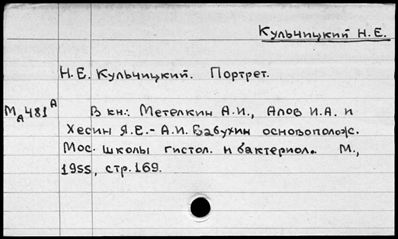 Кульчицкий Н.Е.
Н.Е. Кульчицкий. Портрет.
МА481А В кн.: Метелкин А.И., Алов И.А. и
Хесин Я.Е.- А.И. Бабухин основополож.
Мос. школы гистол. и бактериол. М.,
1955, стр.169.